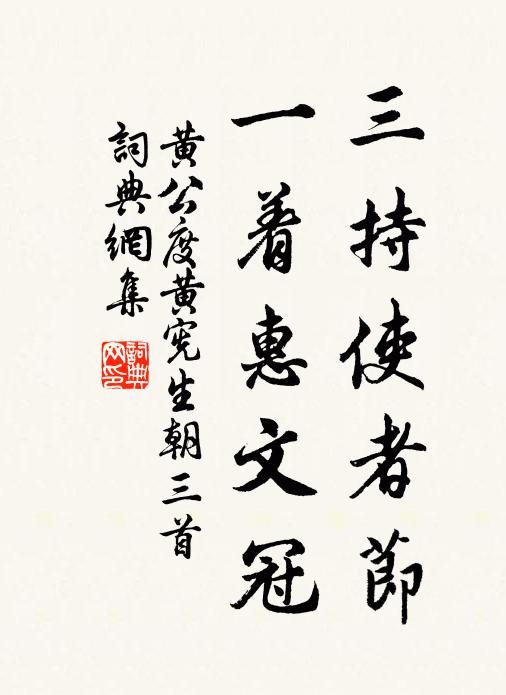 三持使者節
一着惠文冠
黃公度黃憲生朝三首
詞典網集
詞典網印